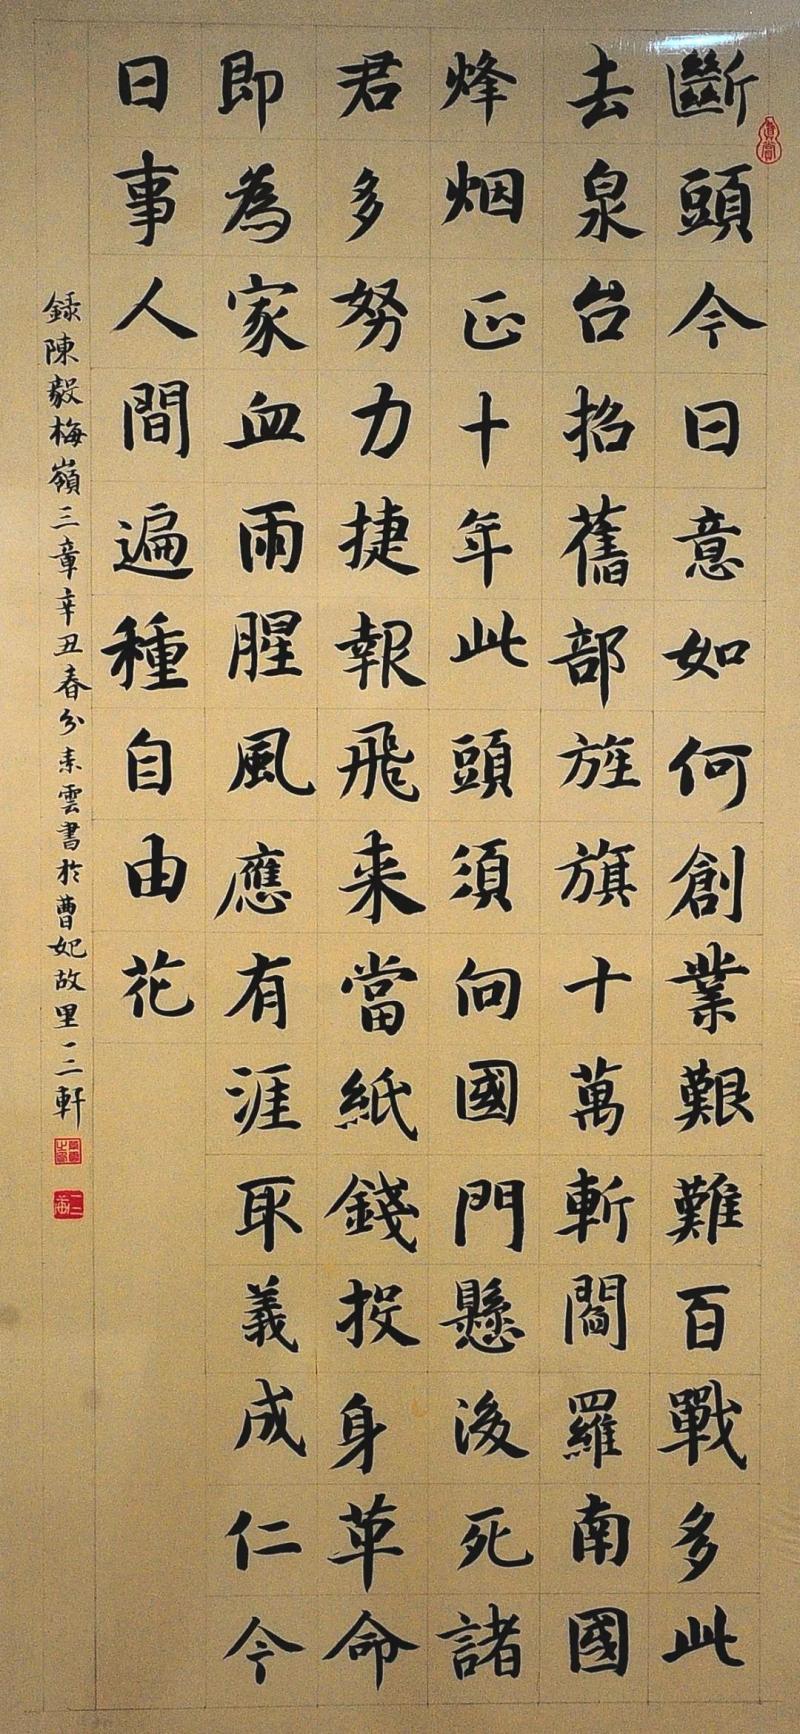 斷頭今日意如何創業艱難百戰多此
去泉台招舊部旌旗十萬斬閻羅南國
烽烟正十年此頭須向國門懸後死諸
君多努力捷報飛来當紙錢投身革命
即為家血雨腥風應有涯取義成仁今
日事人間遍種自由花
録陳毅梅嶺三章辛丑春分素雲書於曹妃故里一三軒